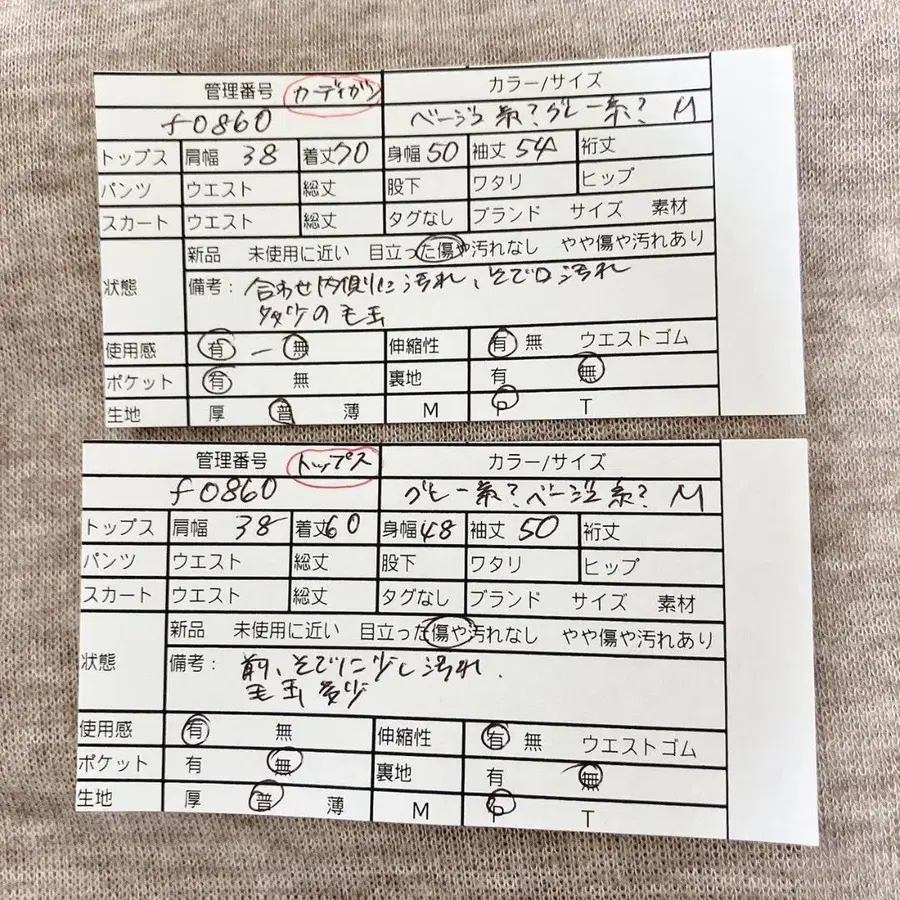 管理番号 カーディガン カラー/サイズ
f0860 ベージュ系?グレー系? M
トップス 肩幅 38 着丈70 身幅 50 袖丈 54 裄丈
パンツ ウエスト 総丈 股下 ワタリ ヒップ
スカート ウエスト 総丈 タグなし ブランド サイズ 素材
新品 未使用に近い 目立った傷や汚れなし やや傷や汚れあり
状態 備考: 合わせ内側に汚れ、そで口汚れ
多少の毛玉
使用感 有 ー 無 伸縮性 有 無 ウエストゴム
ポケット 有 無 裏地 有 無
生地 厚 普 薄 M P T
管理番号 トップス カラー/サイズ
f0860 グレー系?ベージュ系? M
トップス 肩幅 38 着丈60 身幅48 袖丈 50 裄丈
パンツ ウエスト 総丈 股下 ワタリ ヒップ
スカート ウエスト 総丈 タグなし ブランド サイズ 素材
新品 未使用に近い 目立った傷や汚れなし やや傷や汚れあり
状態 備考: 前、そでに少し汚れ.
毛玉多少
使用感 有 無 伸縮性 有 無 ウエストゴム
ポケット 有 無 裏地 有 無
生地 厚 普 薄 M P T